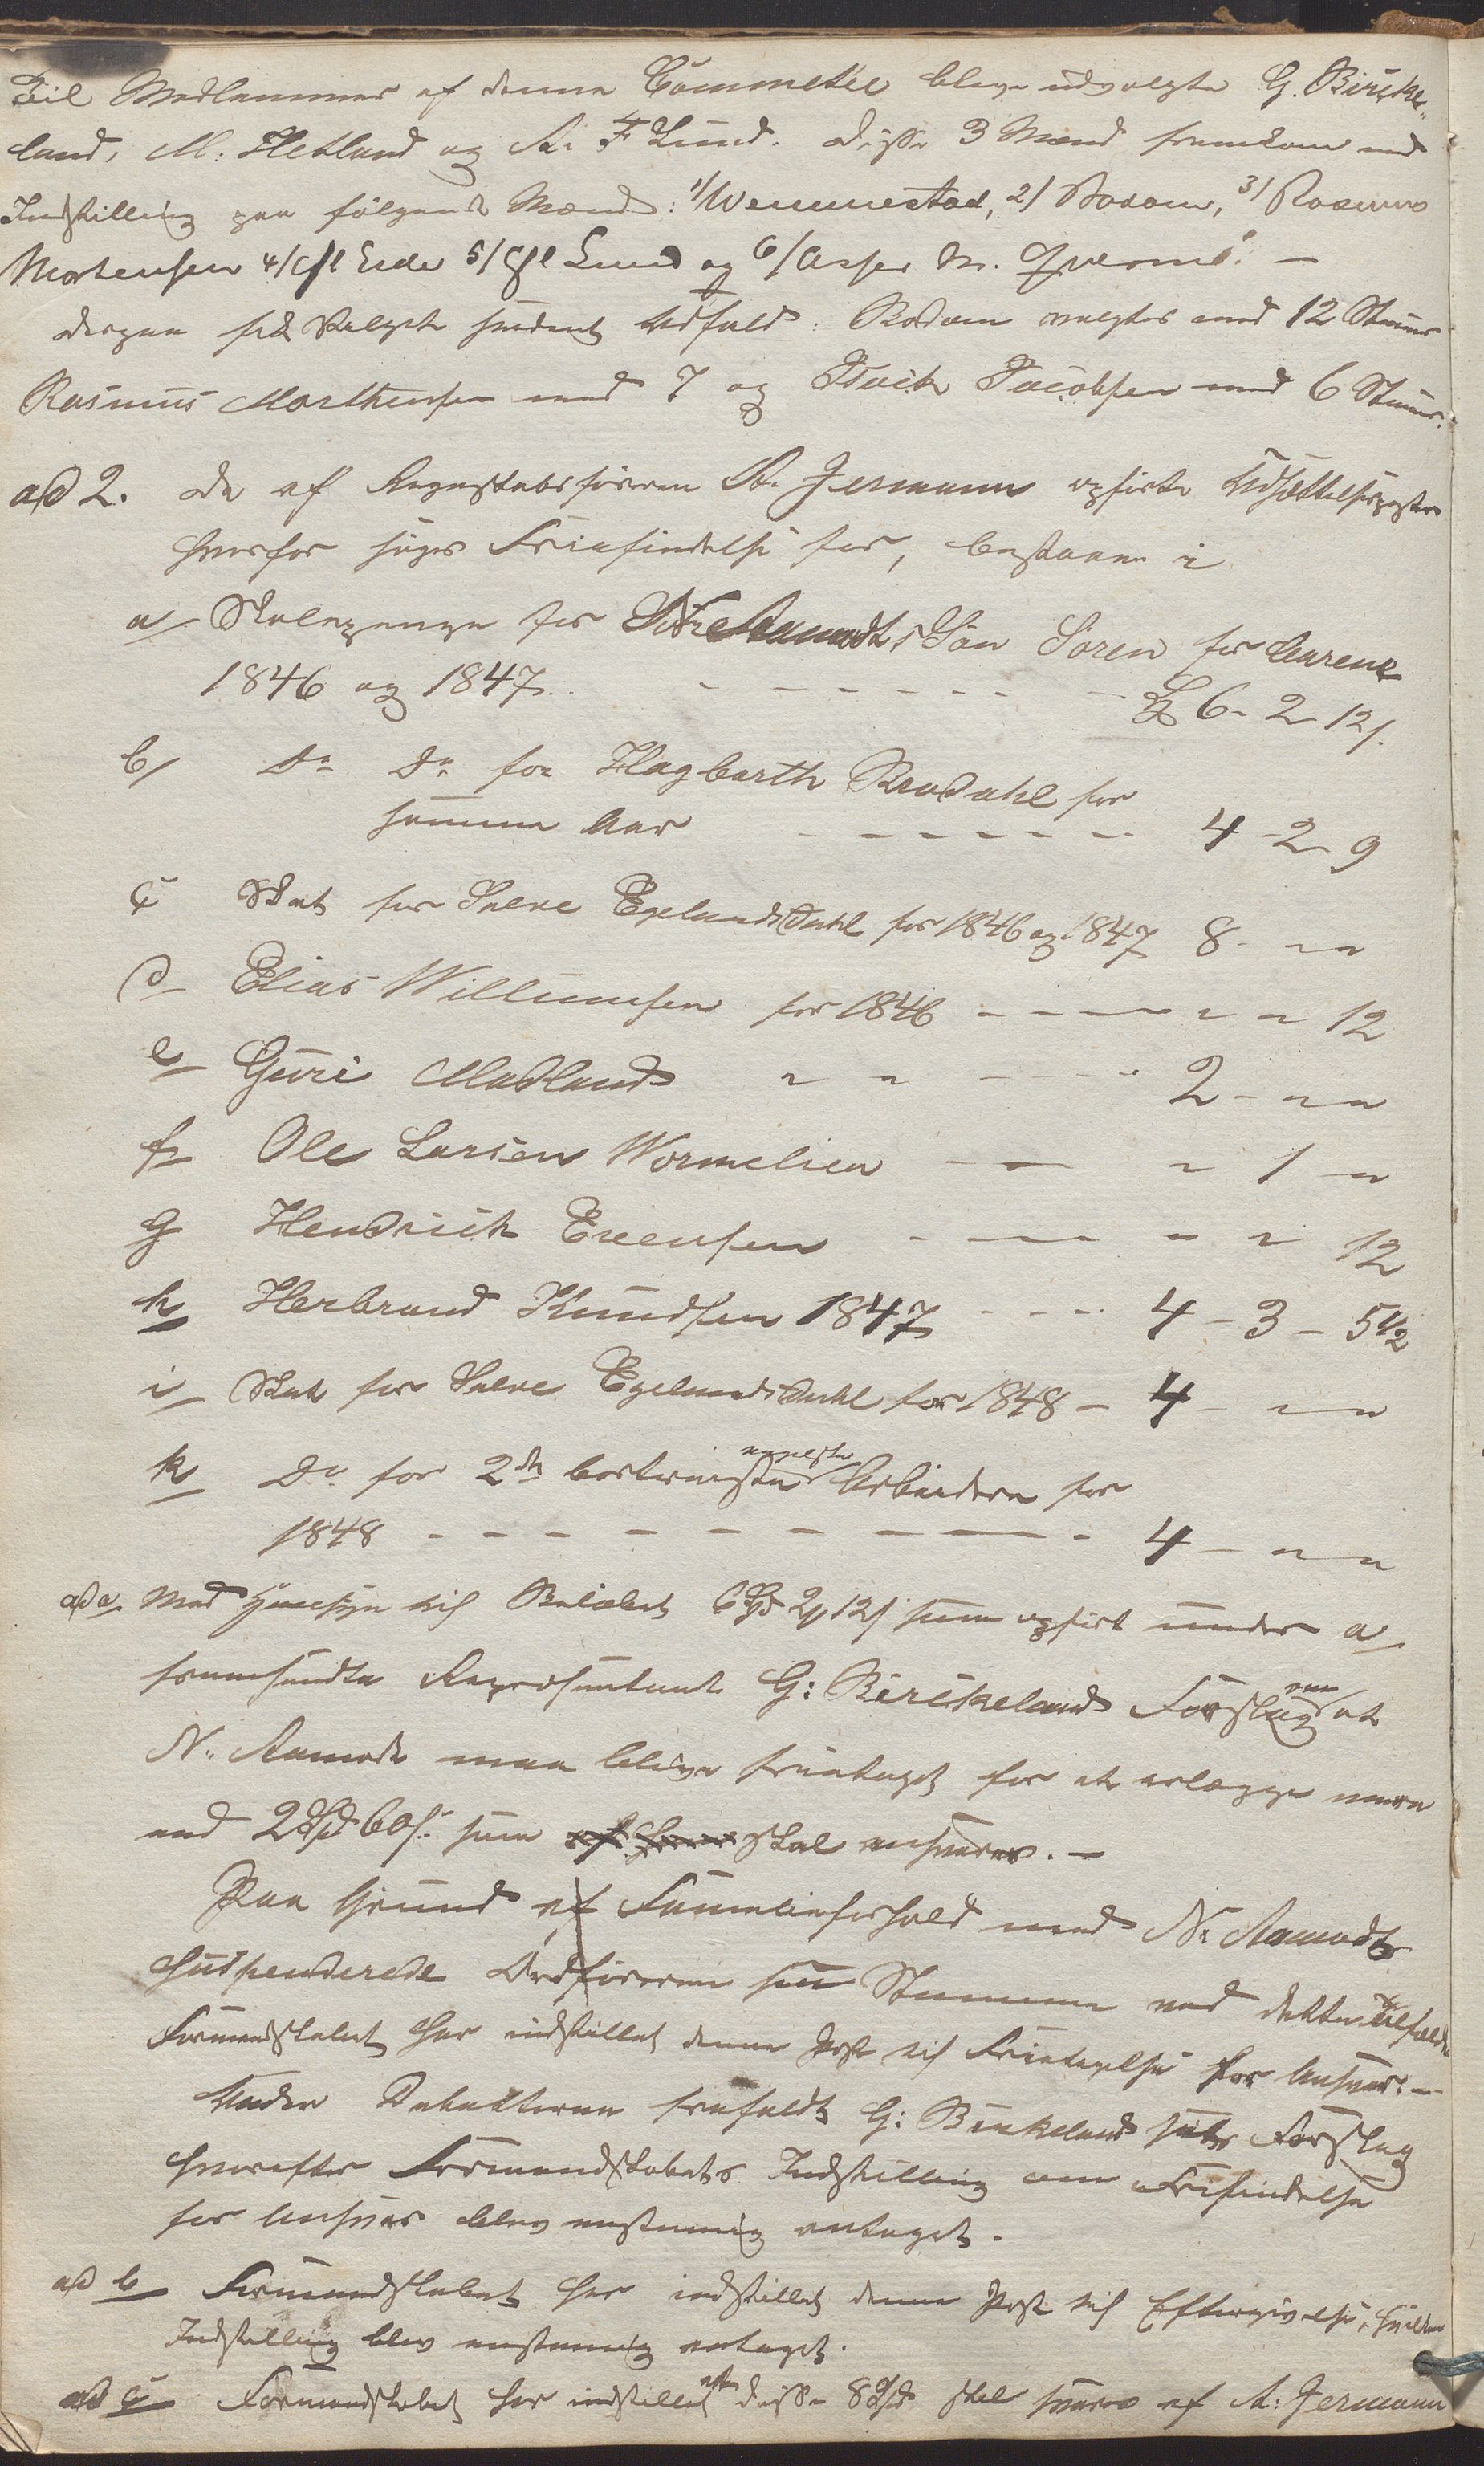 Til Medlemmer af denne Committee blev udvalgte G. Bircke-
land, M. Hetland og A. F Lund. Disse 3 Mænd fremkom med
Indstilling paa følgende Mænd: 1/ Wennestad, 2/ Bodom, 3/ Rasmus
Mortensen 4/ Eide 5/ Lund og 6/ Asser M.
derpaa fik Valget saadant Udfald: Bodom valgtes med 12 Stemmer
Rasmus Morthensen med 7 og Isack Jacobsen med 6 Stemmer.
ad 2. De af Regnskabsføreren A. Jermann opførte Udsættelsesposter
hvorfor søges Frifindelse for, bestaaer i
a/ Skolepenge for N. Aamodts Søn Søren for Aarene
1846 og 1847. - - - - - - 6 - 2 - 12 s.
b/ Do Do for Hagbarth Brodahl for
samme Aar - - - - - - 4 - 2 - 9
c Skat for Salve Egelandsdahl for 1846 og 1847 8 - " "
d Elias Willumsen for 1846 - - - " " 12
e Guri Madland " " - - - 2 - " "
f Ole Larsen Wormelien - - " 1 "
g Hendrick Evensen - - - " " 12
h Herbrand Knudsen 1847 - - - 4 - 3 - 5 1/2
i Skat for Salve Egelandsdahl for 1848 - 4 - " "
k Do for 2de bortreiste Arbeidere for
1848 - - - - - - - - - 4 - " "
ad a Med Hensyn til Beløbet 6 Spd 2 12 s som opført under a
fremsendte Repræsentant G: Birckeland Forslag om at
N. Aamodt maa blive fritaget for at erlægge mere
end 2 Spd 60 s. som skal ansvares. -
Paa Grund af Familieforhold med N. Aamodt
suspenderede Ordføreren sin Stemme ved dette Tilfælde
Formandskabet har indstillet denne Post til Fritagelse for Ansvar. -
Under Debatterne frafaldt G: Birkeland sit Forslag
hvorefter Formandskabets Indstilling om Frifindelse
for Ansvar blev enstemmig antaget.
ad b Formandskabet har indstillet denne Post til Eftergivelse, hvilken
Indstilling blev enstemmig antaget.
ad c Formandskabet har indstillet at disse 8 Spd skal svares af A: Jermann